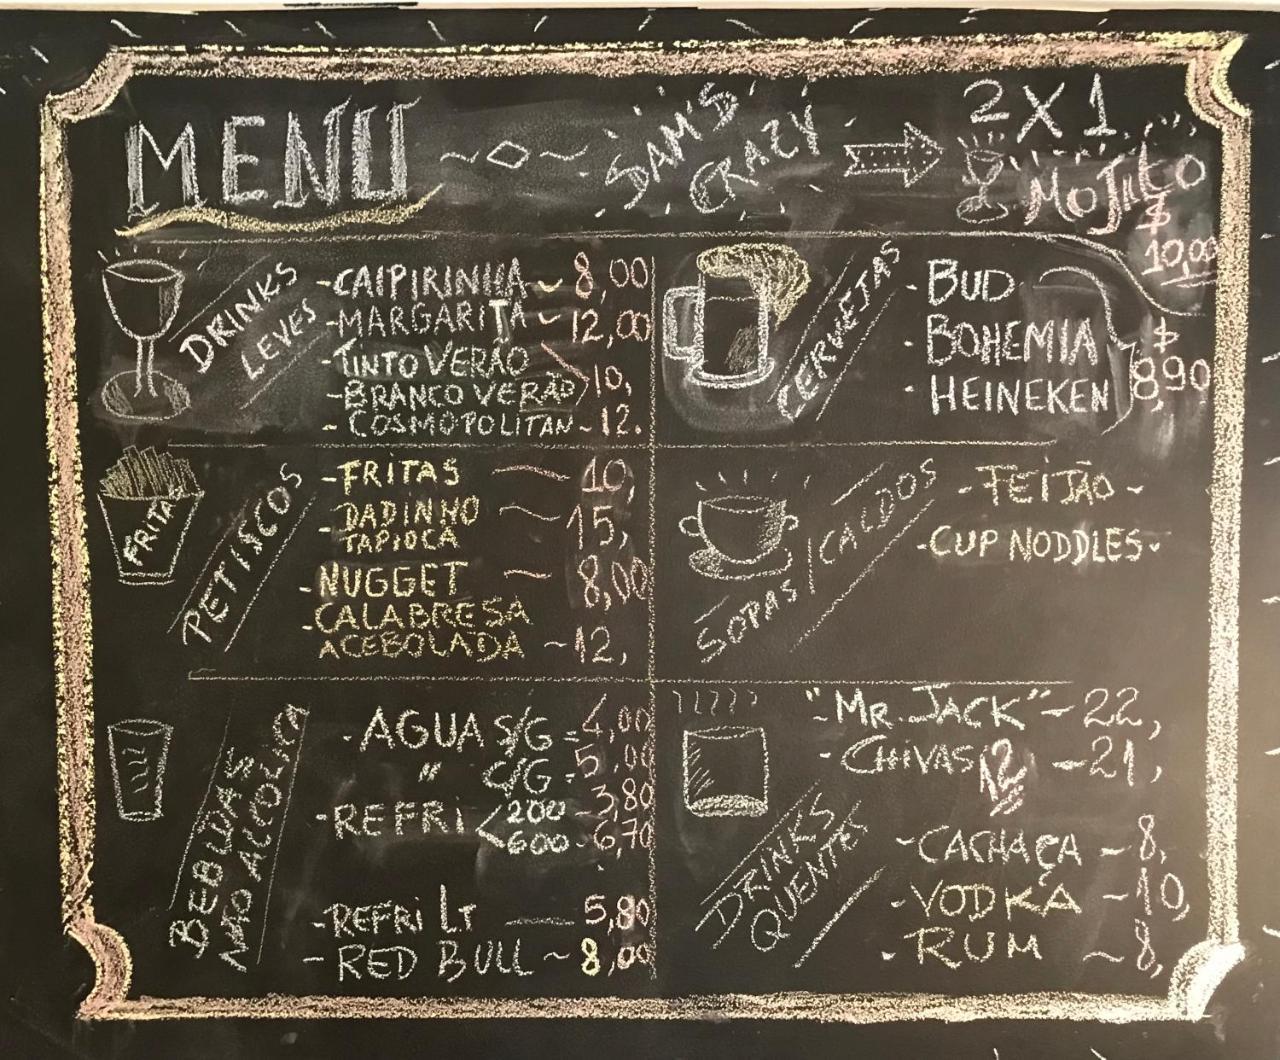 MENU
SAM'S
CRAZY
2 X 1
MOJITO
$
10,00
DRINKS
LEVES
- CAIPIRINHA ~ 8,00
- MARGARITA ~ 12,00
- TINTO VERÃO
- BRANCO VERÃO > 10,
- COSMOPOLITAN ~ 12.
CERVEJAS
- BUD
- BOHEMIA
- HEINEKEN
$
8,90
FRITAS
PETISCOS
- FRITAS ~ 10,
- DADINHO
TAPIOCA ~ 15,
- NUGGET ~ 8,00
- CALABRESA
ACEBOLADA ~ 12,
SOPAS / CALDOS
- FEIJÃO -
- CUP NODDLES.
BEBIDAS
NÃO ALCOLICA
- AGUA S/G = 4,00
" C/G - 5,00
- REFRI < 200 - 3,80
600 - 6,70
- REFRI LT — 5,80
- RED BULL ~ 8,00
DRINKS
QUENTES
- "MR. JACK" - 22,
- CHIVAS 12 - 21,
- CACHAÇA ~ 8,
- VODKA ~ 10,
- RUM ~ 8,